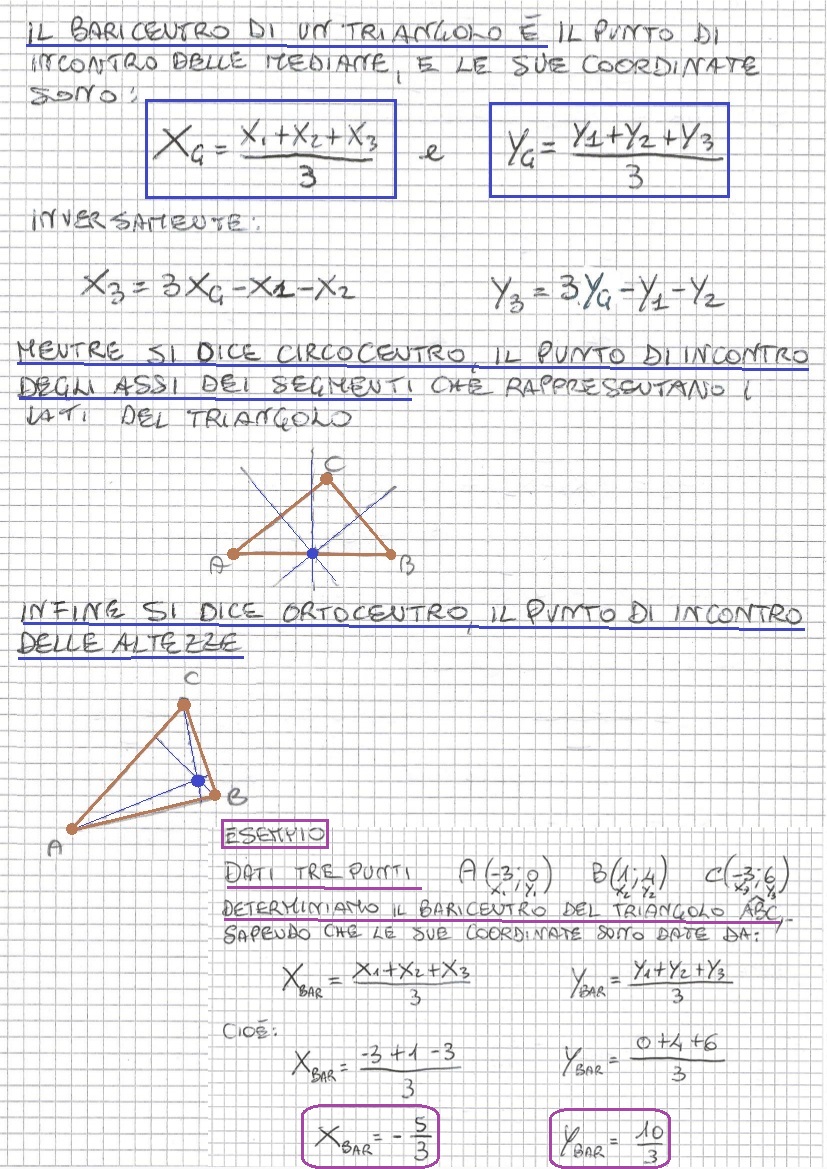 IL BARICENTRO DI UN TRIANGOLO È IL PUNTO DI
INCONTRO DELLE MEDIANE, E LE SUE COORDINATE
SONO:
X_G = (X₁+X₂+X₃)/3 e Y_G = (Y1+Y₂+Y₃)/3
INVERSAMENTE:
X₃ = 3X_G - X1 - X₂ Y₃ = 3Y_G - Y₁ - Y₂
MENTRE SI DICE CIRCOCENTRO, IL PUNTO DI INCONTRO
DEGLI ASSI DEI SEGMENTI CHE RAPPRESENTANO I
LATI DEL TRIANGOLO
C
A B
INFINE SI DICE ORTOCENTRO, IL PUNTO DI INCONTRO
DELLE ALTEZZE
C
B
A
ESEMPIO
DATI TRE PUNTI A(-3;0) B(1;4) C(-3;6)
X₁ Y₁ X₂ Y₂ X₃ Y₃
DETERMINIAMO IL BARICENTRO DEL TRIANGOLO AB̂C,
SAPENDO CHE LE SUE COORDINATE SONO DATE DA:
X_BAR = (X1+X₂+X₃)/3 Y_BAR = (Y1+Y₂+Y₃)/3
CIOÈ:
X_BAR = (-3+1-3)/3 Y_BAR = (0+4+6)/3
X_BAR = -5/3 Y_BAR = 10/3